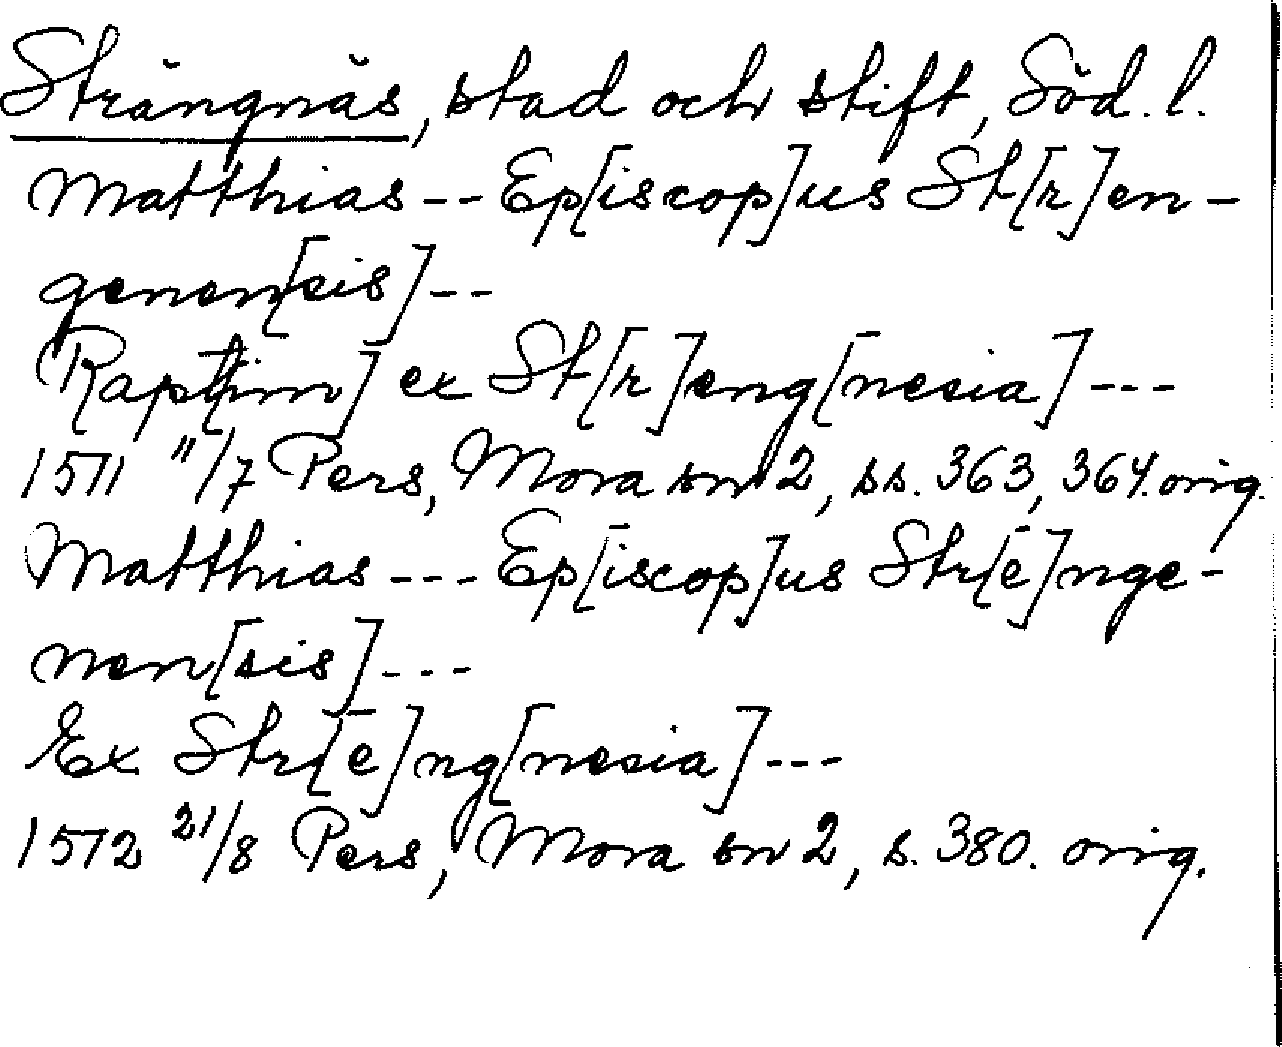 Strängnäs, stad och stift, Söd. l.
Matthias -- Ep[iscop]us St[r]en-
genen[sis] --
Rapt[im] ex St[r]eng[nesia] ---
1511 11/7 Pers, Mora sn 2, ss. 363, 364. orig.
Matthias --- Ep[iscop]us Str[e]nge-
nen[sis] ---
Ex Str[e]ng[nesia] ---
1512 21/8 Pers, Mora sn 2, s. 380. orig.